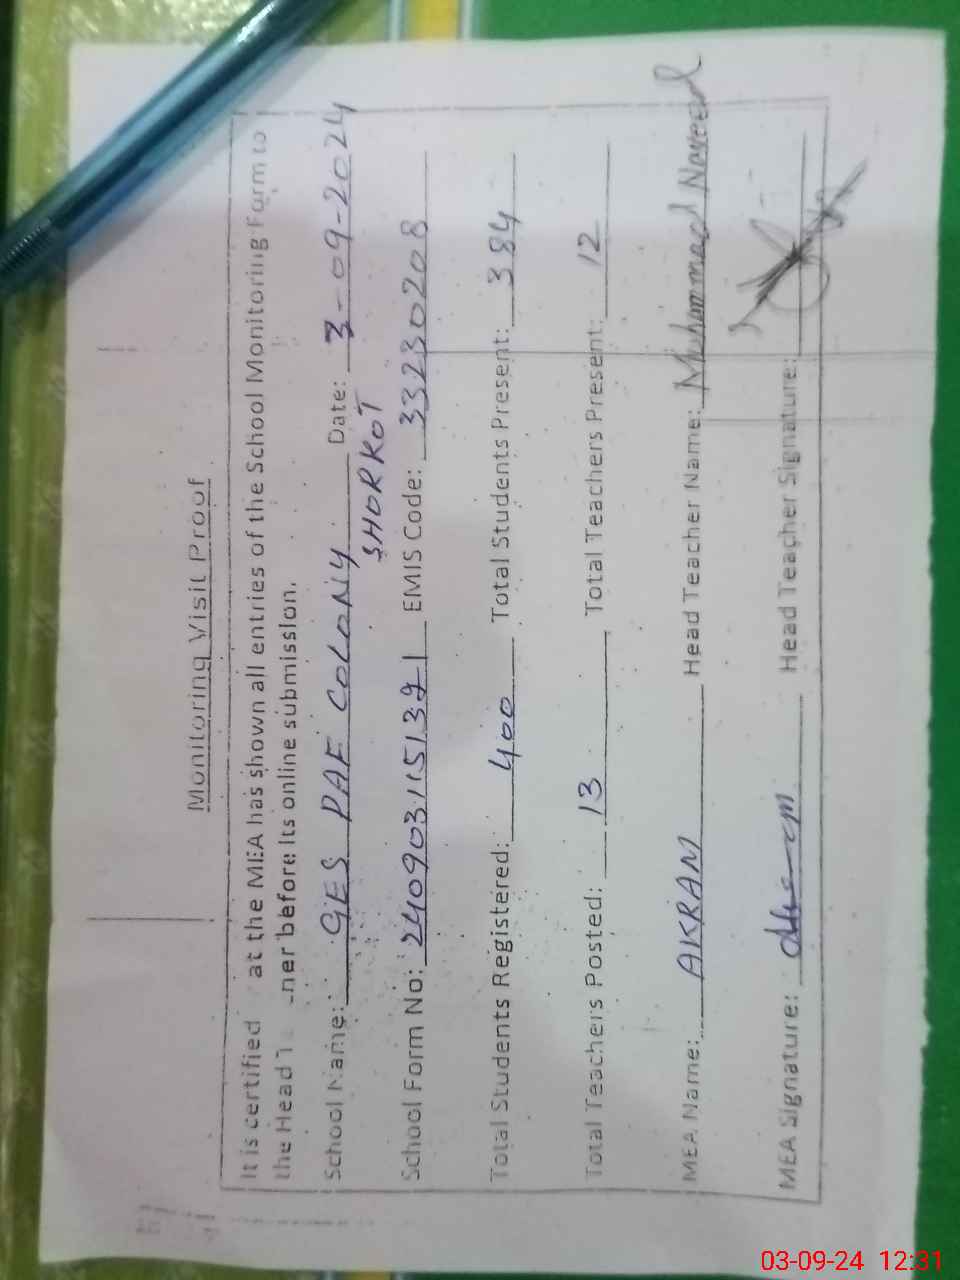 Monitoring Visit Proof
It is certified at the MEA has shown all entries of the School Monitoring Form to
the Head ner before its online submission.
School Name: GES PAF COLONY Date: 3-09-2024
SHORKOT
School Form No: EMIS Code: 33230208
Total Students Registered: 400 Total Students Present: 384
Total Teachers Posted: 13 Total Teachers Present: 12
MEA Name: AKRAM Head Teacher Name: Muhammad Naveed
MEA Signature: Head Teacher Signature:
03-09-24 12:31